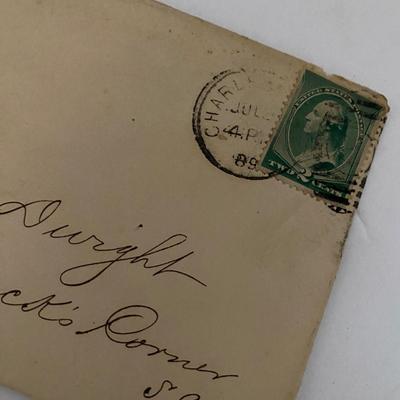 CHARLE
JUL
4 P
89
UNITED STATES
TWO 2 CENTS
Dwight
ck's Corner
S